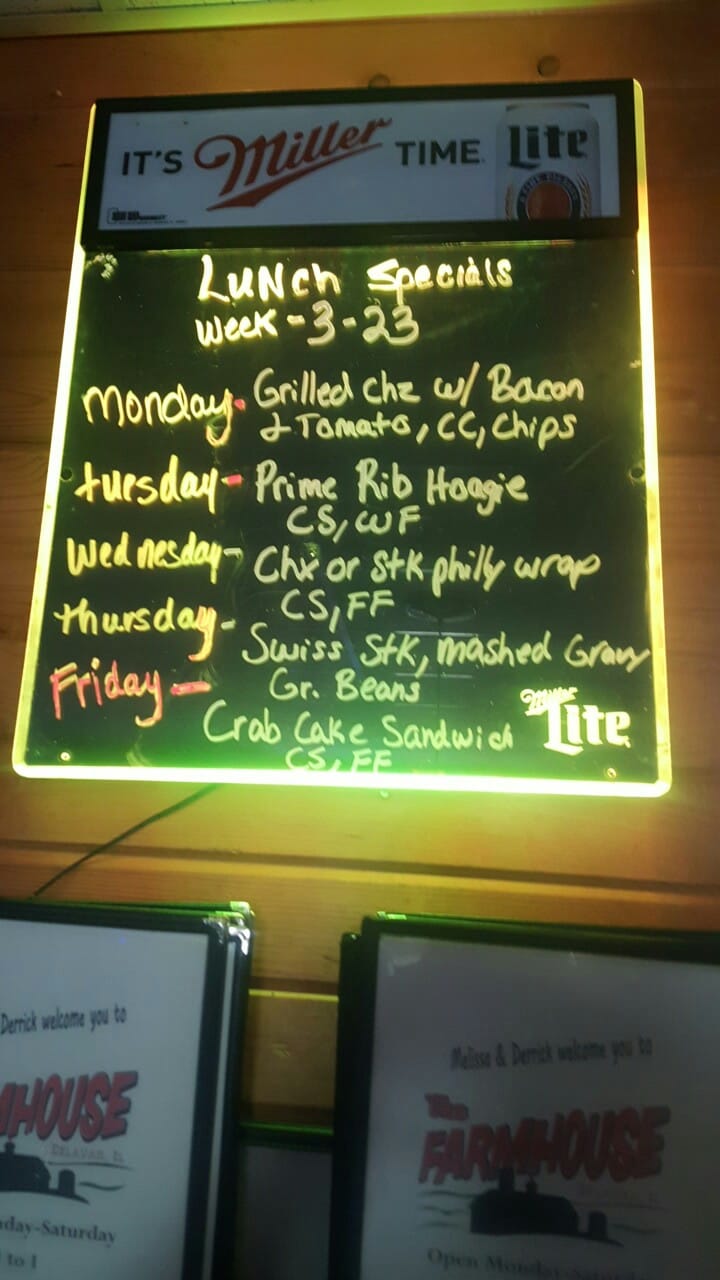 IT'S Miller TIME Lite
Lunch Specials
Week - 3-23
Monday - Grilled Chz w/ Bacon
& Tomato, CC, Chips
Tuesday - Prime Rib Hoagie
CS, WF
Wednesday - Chx or Stk philly wrap
CS, FF
Thursday - Swiss Stk, mashed Gravy
Gr. Beans
Friday - Crab Cake Sandwich
CS, FF
Miller
Lite
Derrick welcome you to
MHOUSE
DELAVAN, IL
nday-Saturday
to 1
Melissa & Derrick welcome you to
The
FARMHOUSE
Open Monday-Saturday